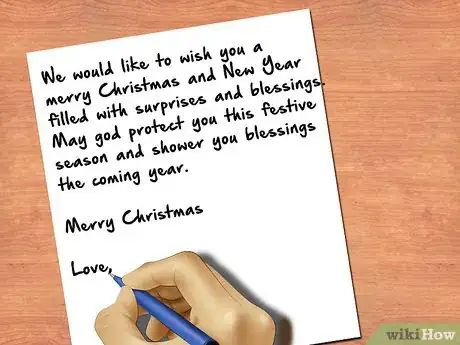 We would like to wish you a
merry Christmas and New Year
filled with surprises and blessings.
May god protect you this festive
season and shower you blessings
the coming year.
Merry Christmas
Love,
wikiHow